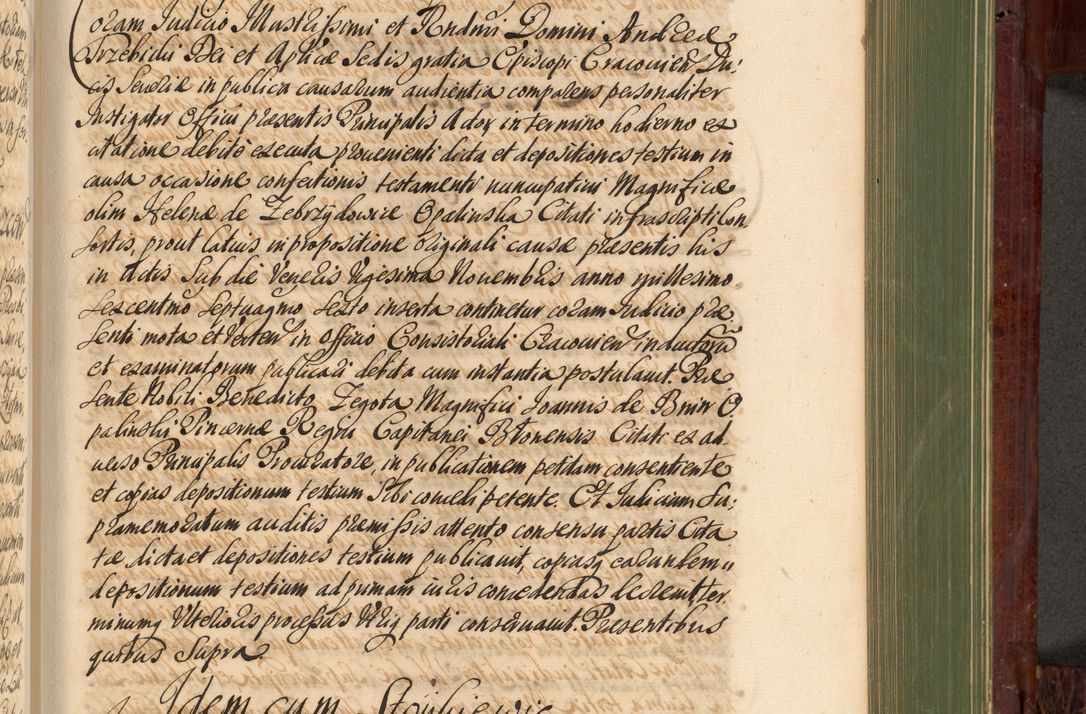 Coram Judicio Illustrissimi et Rndmi Domini Andreæ
Trzebicki Dei et Aplicæ Sedis gratia Episcopi Cracouien Du:
cis Seueriæ in publica causarum audientia comparens personaliter
Instigator Officii præsentis Principalis Actor in termino hodierno ex
citatione debite executa prouenienti dicta et depositiones testium in
causa occasione confectionis testamenti nuncupatiui Magnificæ
olim Helenæ de Zebrzydowice Opalinska Citati infrascripti con
sortis, prout latius in propositione originali causæ præsentis his
in Actis Sub die Veneris Vigesima Nouembris anno millesimo
sexcentmo septuagmo sexto inserta continetur coram Judicio præ
senti mota et verten in Officio Consistoriali Cracouien inductorum
et examinatorum publicari debita cum instantia postulauit. Præ
sente Nobili Benedicto Zegota Magnifici Joannis de Bnin O
palinski Pincernæ Regni Capitanei Btonensis Citati ex ad
uerso Principalis Procuratore, in publicationem petitam consentiente
et copias depositionum testium Sibi concedi petente. Et Judicium Su:
pramemoratum auditis præmissis attento consensu partis Cita
tæ dicta et depositiones testium publicauit, copiasq earundem
depositionum testium ad primam iuris concedendas decreuit, ter
minumq Vlterioris processus Vtriq parti conseruauit. Præsentibus
quibus Supra.
Idem cum